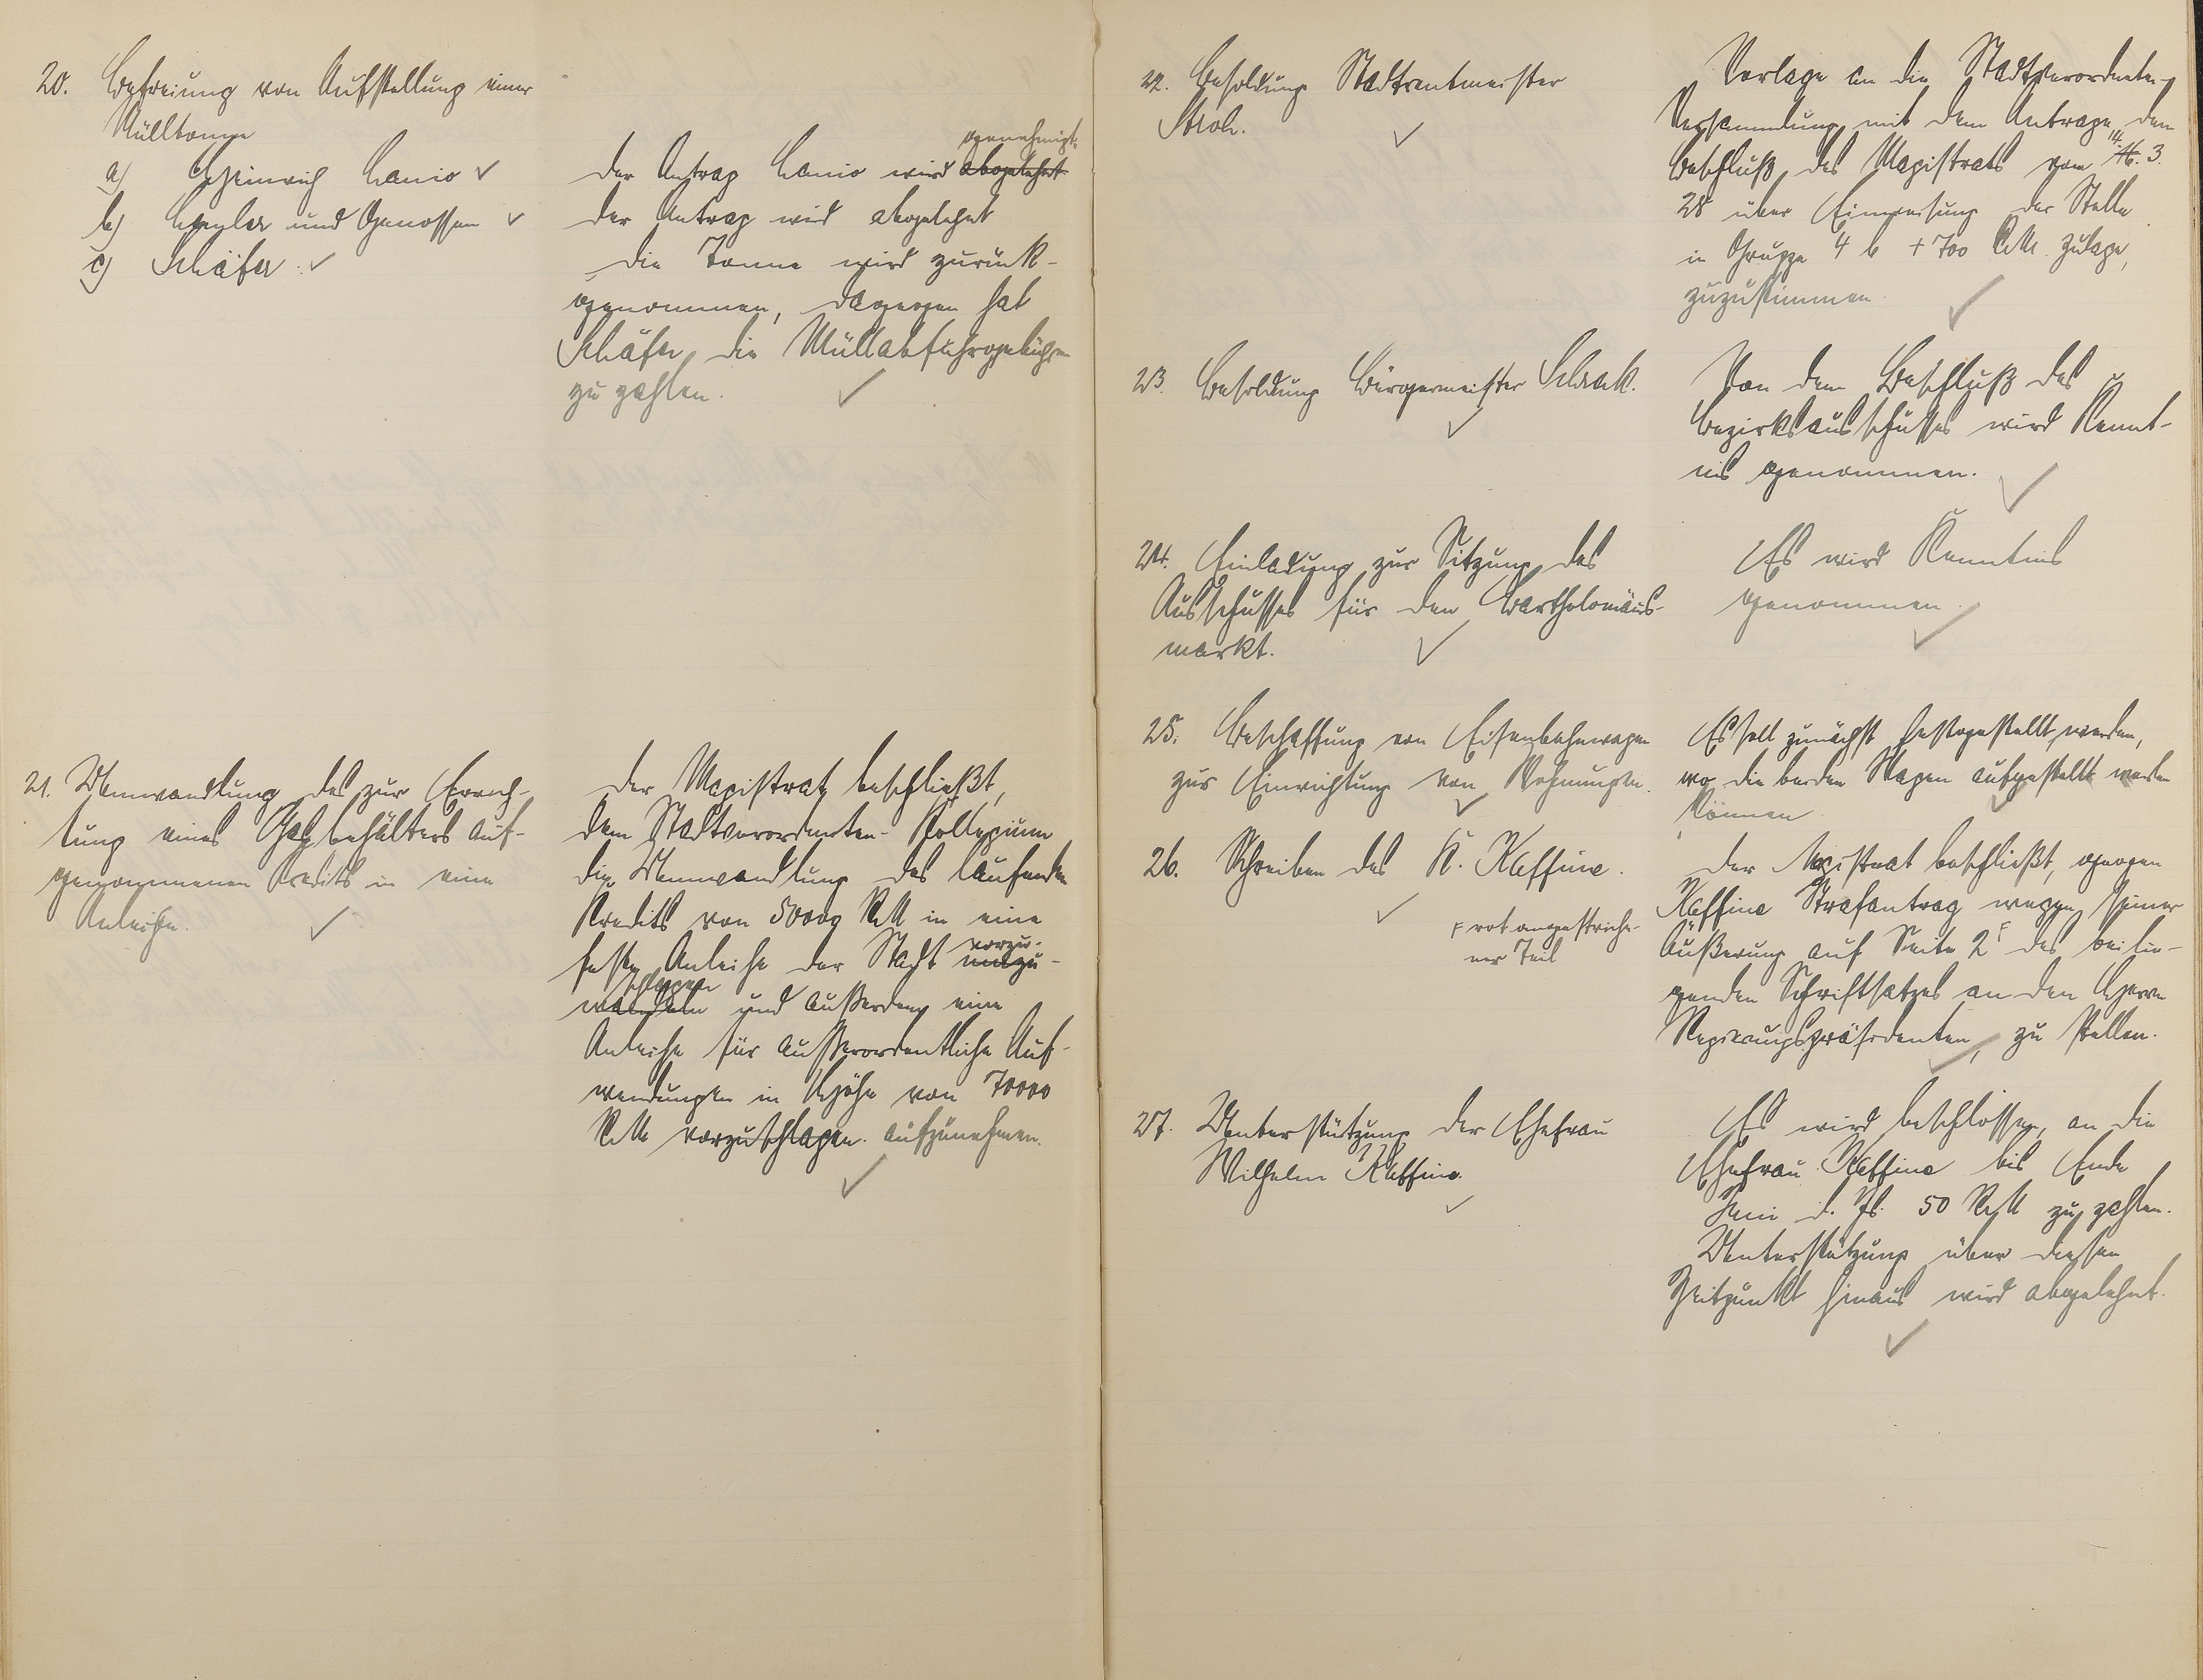 20. Befreiung von Aufstellung einer
Mülltonne
a) Heinrich Lanio
b) und Genossen
c) Schäfer
genehmigt.
Der Antrag Lanio wird abgelehnt
Der Antrag wird abgelehnt
Die Tonne wird zurück-
genommen, dagegen hat
Schäfer die Müllabfuhrgebühren
zu zahlen.
21. Umwandlung des zur Errich-
tung eines Gasbehälters auf-
genommenen Kredits in eine
Anleihe.
Der Magistrat beschließt,
dem Stadtverordneten-Kollegium
die Umwandlung des laufenden
Kredits von 50000 RM in eine
feste Anleihe der Stadt umzu-
vorzu-
wandeln und außerdem eine
schlagen
Anleihe für außerordentliche Auf-
wendungen in Höhe von 70000
RM vorzuschlagen. aufzunehmen.
22. Besoldung Stadtrentmeister
Stroh.
Vorlage an die Stadtverordneten-
Versammlung mit dem Antrage, dem
Beschluß des Magistrats vom 14. 3.
28 über Einweisung der Stelle
in Gruppe 4 b + 700 RM. Zulage,
zuzustimmen.
23. Besoldung Bürgermeister
Von dem Beschluß des
Bezirksausschusses wird Kennt-
nis genommen.
24. Einladung zur Sitzung des
Ausschusses für den Bartholomäus-
markt.
Es wird Kenntnis
genommen.
25. Beschaffung von Eisenbahnwagen
zur Einrichtung von Wohnungen.
Es soll zunächst festgestellt werden,
wo die beiden Wagen aufgestellt werden
können
26. Schreiben des K. Kaffine.
F rot angestriche-
ner Teil
Der Magistrat beschließt, gegen
Kaffine Strafantrag wegen seiner
Äußerung auf Seite 2 F des beilie-
genden Schriftsatzes an den Herrn
Regierungspräsidenten, zu stellen.
27. Unterstützung der Ehefrau
Wilhelm Kaffine.
Es wird beschlossen, an die
Ehefrau Kaffine bis Ende
Juni d. Js. 50 RM zu zahlen.
Unterstützung über diesen
Zeitpunkt hinaus wird abgelehnt.